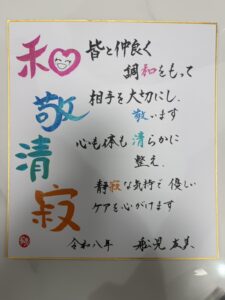 和
皆と仲良く
調和をもって
敬
相手を大切にし、
敬います
清
心も体も清らかに
整え、
寂
静寂な気持で優しい
ケアを心がけます
令和八年